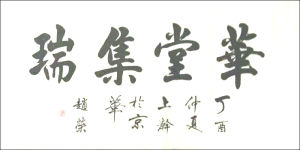 華堂集瑞
丁酉
仲夏
上
於京
華
趙榮